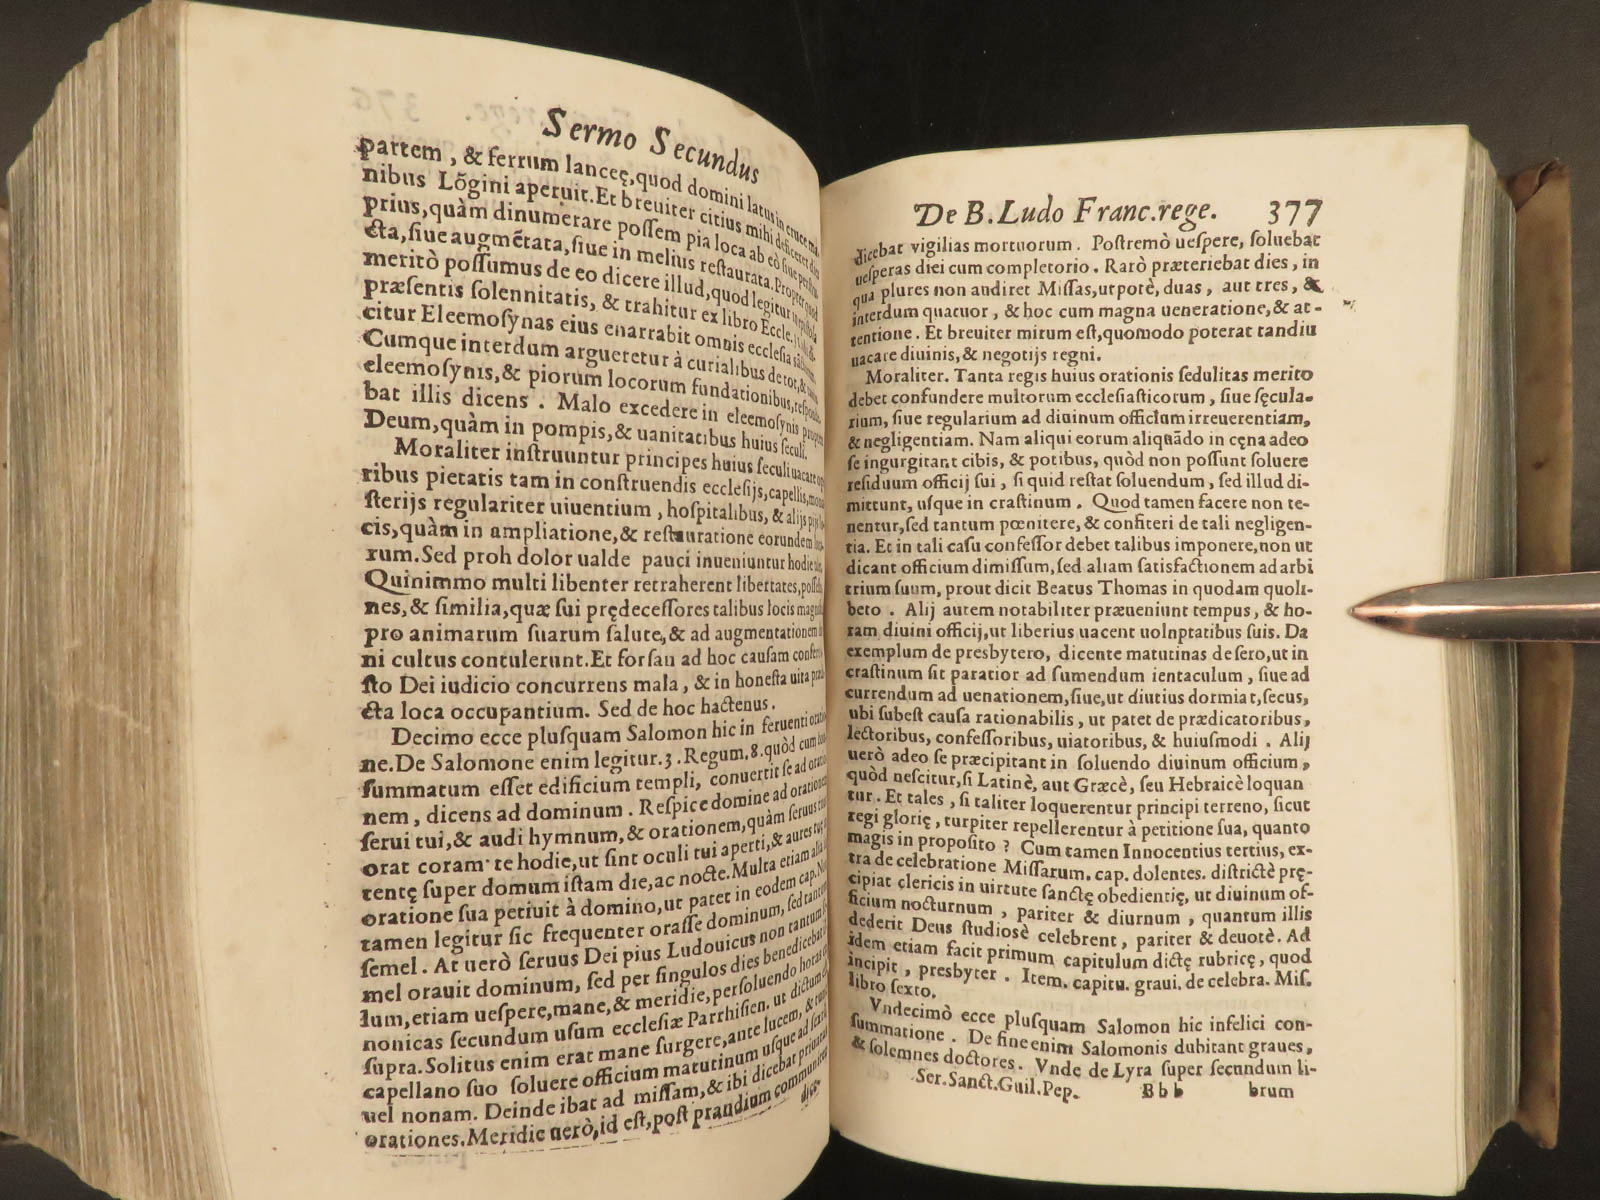 Sermo Secundus
partem, & ferrum lanceę, quod domini latus in cruce ma
nibus Lōgini aperuit. Et breuiter citius mihi deficeret dies
prius, quàm dinumerare possem pia loca ab eò siue
cta, siue augmētata, siue in melius restaurata. Propter quod
meritò possumus de eo dicere illud, quod legitur in epistola
præsentis solennitatis, & trahitur ex libro Eccle.
citur Eleemosynas eius enarrabit omnis ecclesia
Cumque interdum argueretur à curialibus de tot, &
eleemosynis, & piorum locorum fundationibus,
bat illis dicens . Malo excedere in eleemosynis propter
Deum, quàm in pompis, & uanitatibus huius seculi.
Moraliter instruuntur principes huius seculi uacare
ribus pietatis tam in construendis ecclesijs, capellis,
sterijs regulariter uiuentium , hospitalibus, & alijs pijs
cis, quàm in ampliatione, & restauratione eorundem
rum. Sed proh dolor ualde pauci inueniuntur hodie
Quinimmo multi libenter retraherent libertates,
nes, & similia, quæ sui prędecessores talibus locis
pro animarum suarum salute, & ad augmentationem
ni cultus contulerunt. Et forsan ad hoc causam
sto Dei iudicio concurrens mala , & in honesta uita
cta loca occupantium. Sed de hoc hactenus .
Decimo ecce plusquam Salomon hic in feruenti oratio
ne. De Salomone enim legitur. 3. Regum. 8. quòd cum
summatum esset edificium templi, conuertit se ad
nem , dicens ad dominum . Respice domine ad orationem
serui tui, & audi hymnum, & orationem, quàm seruus tuus
orat coram te hodie, ut sint oculi tui aperti, & aures tuę
tentę super domum istam die, ac nocte. Multa etiam alia
oratione sua petiuit à domino, ut patet in eodem cap.
tamen legitur sic frequenter orasse dominum, sed tantum
semel . At uerò seruus Dei pius Ludouicus non tantum
mel orauit dominum, sed per singulos dies benedicebat
lum, etiam uespere, mane, & meridie, persoluendo horas
nonicas secundum usum ecclesiæ Parrhisien. ut dictum
supra. Solitus enim erat mane surgere, ante lucem, &
capellano suo soluere officium matutinum usque ad
uel nonam. Deinde ibat ad missam, & ibi dicebat priuatas
orationes. Meridie uerò, id est, post prandium
dice-
De B. Ludo Franc. rege. 377
dicebat vigilias mortuorum . Postremò uespere, soluebat
uesperas diei cum completorio . Rarò præteriebat dies , in
qua plures non audiret Missas, utpotè, duas , aut tres , &
interdum quatuor , & hoc cum magna ueneratione, & at-
tentione . Et breuiter mirum est, quomodo poterat tandiu
uacare diuinis, & negotijs regni.
Moraliter. Tanta regis huius orationis sedulitas merito
debet confundere multorum ecclesiasticorum , siue sęcula-
rium, siue regularium ad diuinum officium irreuerentiam,
& negligentiam. Nam aliqui eorum aliquādo in cęna adeo
se ingurgitant cibis, & potibus, quòd non possunt soluere
residuum officij sui , si quid restat soluendum , sed illud di-
mittunt, usque in crastinum . Quod tamen facere non te-
nentur, sed tantum pœnitere, & confiteri de tali negligen-
tia. Et in tali casu confessor debet talibus imponere, non ut
dicant officium dimissum, sed aliam satisfactionem ad arbi
trium suum, prout dicit Beatus Thomas in quodam quoli-
beto . Alij autem notabiliter præueniunt tempus , & ho-
ram diuini officij, ut liberius uacent uolnptatibus suis. Da
exemplum de presbytero, dicente matutinas de sero, ut in
crastinum sit paratior ad sumendum ientaculum , siue ad
currendum ad uenationem, siue, ut diutius dormiat, secus,
ubi subest causa rationabilis , ut patet de prædicatoribus,
lectoribus, confessoribus, uiatoribus, & huiusmodi . Alij
uerò adeo se præcipitant in soluendo diuinum officium ,
quòd nescitur, si Latinè, aut Græcè, seu Hebraicè loquan
tur . Et tales , si taliter loquerentur principi terreno, sicut
regi glorię , turpiter repellerentur à petitione sua, quanto
magis in proposito ? Cum tamen Innocentius tertius, ex-
tra de celebratione Missarum. cap. dolentes. districtè prę-
cipiat clericis in uirtute sanctę obedientię, ut diuinum of-
ficium nocturnum , pariter & diurnum , quantum illis
dederit Deus studiosè celebrent , pariter & deuotè. Ad
idem etiam facit primum capitulum dictę rubricę, quod
incipit , presbyter . Item. capitu. graui. de celebra. Mis.
libro sexto.
Vndecimò ecce plusquam Salomon hic infelici con-
summatione . De fine enim Salomonis dubitant graues,
& solemnes doctores. Vnde de Lyra super secundum li-
Ser. Sanct. Guil. Pep. Bbb brum